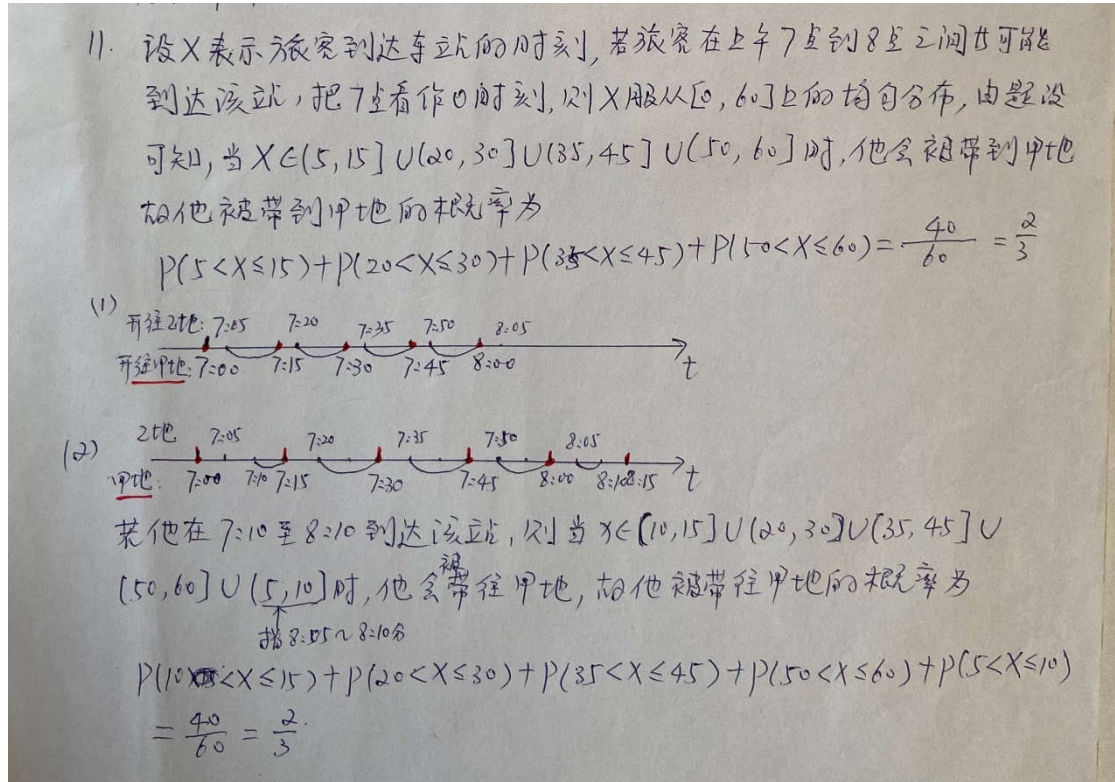 11. 设X表示旅客到达车站的时刻,若旅客在上午7点到8点之间均可能
到达该站,把7点看作0时刻,则X服从[0,60]上的均匀分布,由题设
可知,当X∈(5,15]∪(20,30]∪(35,45]∪(50,60]时,他会被带到甲地
故他被带到甲地的概率为
P(5<X≤15)+P(20<X≤30)+P(35<X≤45)+P(50<X≤60)=40/60=2/3
(1)
开往乙地: 7:05 7:20 7:35 7:50 8:05
开往甲地: 7:00 7:15 7:30 7:45 8:00 t
(2) 乙地 7:05 7:20 7:35 7:50 8:05
甲地: 7:00 7:10 7:15 7:30 7:45 8:00 8:10 8:15 t
若他在7:10至8:10到达该站,则当X∈[10,15]∪(20,30]∪(35,45]∪
(50,60]∪(5,10]时,他会被带往甲地,故他被带往甲地的概率为
指8:05~8:10分
P(10<X≤15)+P(20<X≤30)+P(35<X≤45)+P(50<X≤60)+P(5<X≤10)
=40/60=2/3.